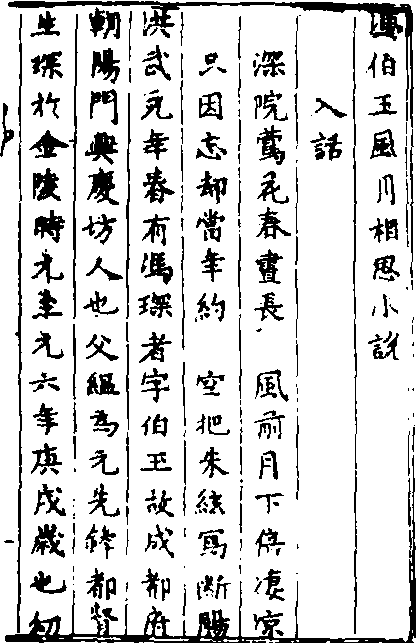 馮伯玉風月相思小說
入話
深院鶯花春晝長　風前月下倍凄凉
只因忘却當年約　空把朱絃寫斷腸
洪武元年春有馮琛者字伯玉故成都府
朝陽門興慶坊人也父緼爲元先鋒都
生琛於金陵時元至元六年庚戌歲也初